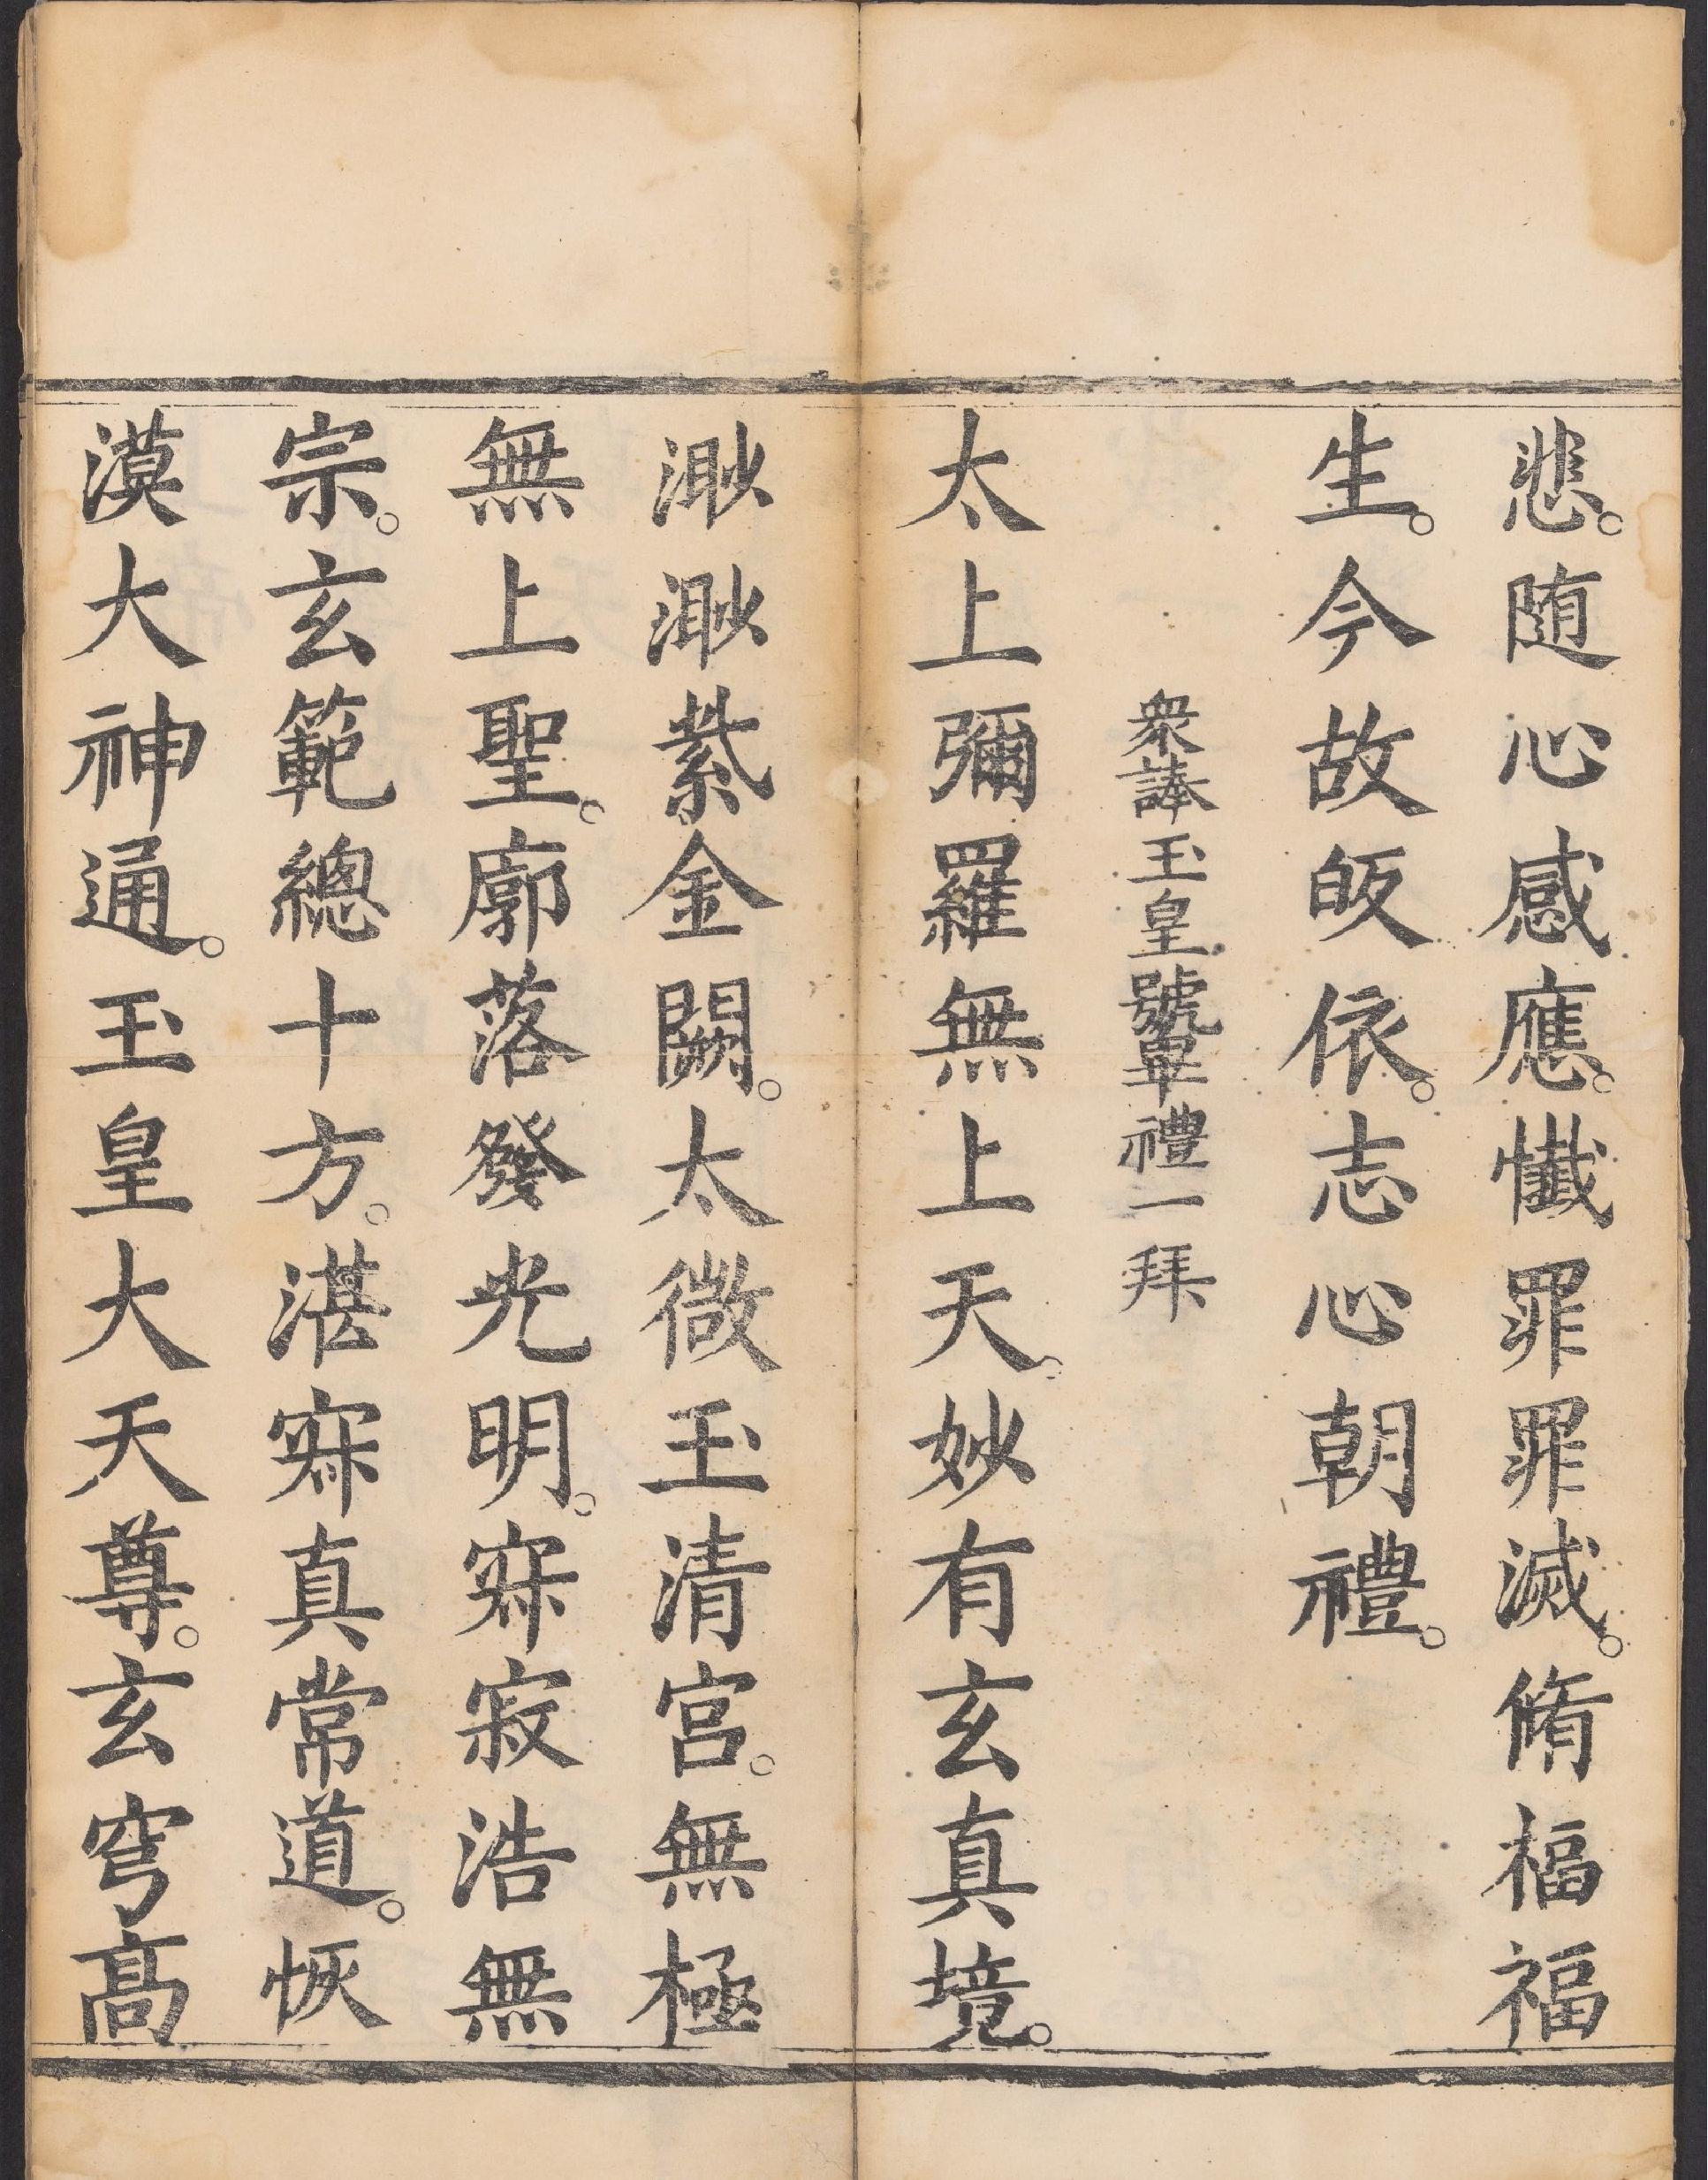 悲。随心感應。懺罪罪滅。脩福福
生。今故皈依。志心朝禮。
衆誦玉皇號畢禮一拜
太上彌羅無上天。妙有玄真境。
渺渺紫金闕。太微玉清宮。無極
無上聖。廓落發光明。寂寂浩無
宗。玄範總十方。湛寂真常道。恢
漠大神通。玉皇大天尊。玄穹高